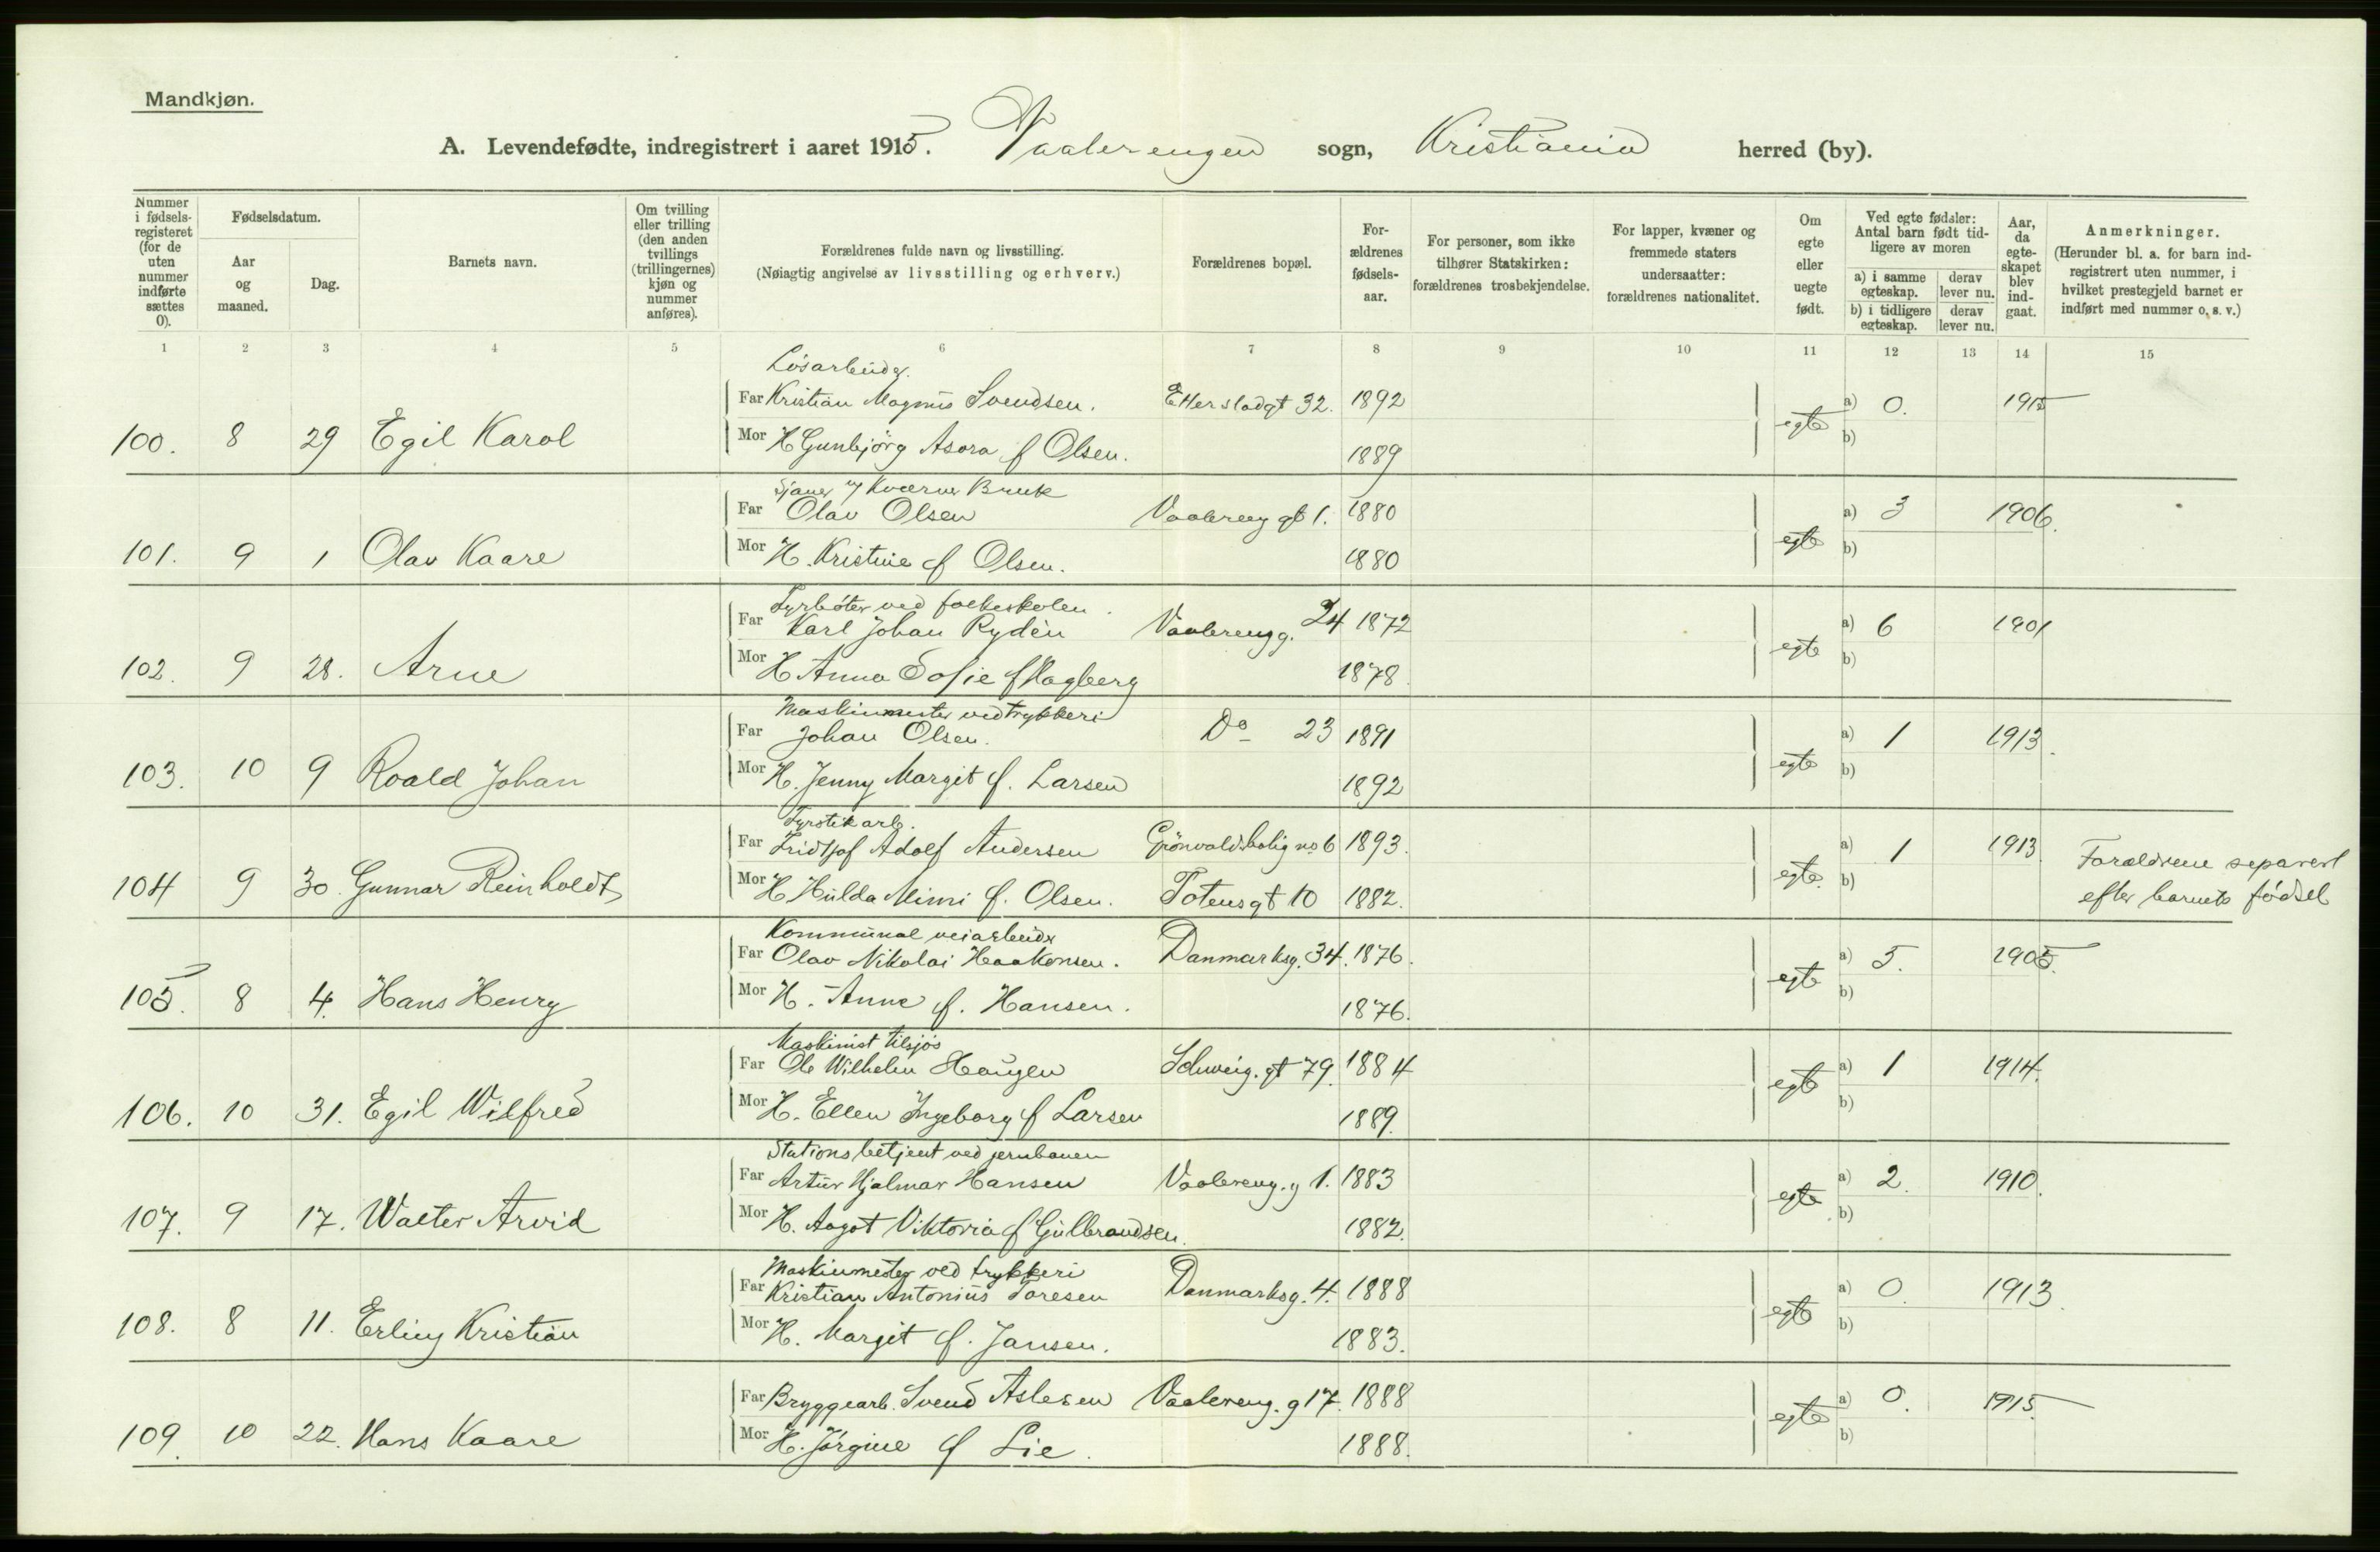 Mandkjøn.
A. Levendefødte, indregistrert i aaret 1915. Vaalerengen sogn, Kristiania herred (by).
Nummer i fødsels-registeret (for de uten nummer indførte sættes 0).
Fødselsdatum.
Aar og maaned.
Dag.
Barnets navn.
Om tvilling eller trilling (den anden tvillings (trillingernes) kjøn og nummer anføres).
Forældrenes fulde navn og livsstilling.
(Nøiagtig angivelse av livsstilling og erhverv.)
Forældrenes bopæl.
For-ældrenes fødsels-aar.
For personer, som ikke tilhører Statskirken: forældrenes trosbekjendelse.
For lapper, kvæner og fremmede staters undersaatter: forældrenes nationalitet.
Om egte eller uegte født.
Ved egte fødsler: Antal barn født tid-ligere av moren
a) i samme egteskap.
derav lever nu.
b) i tidligere egteskap.
derav lever nu.
Aar, da egte-skapet blev ind-gaat.
Anmerkninger.
(Herunder bl. a. for barn ind-registrert uten nummer, i hvilket prestegjeld barnet er indført med nummer o. s. v.)
1 2 3 4 5 6 7 8 9 10 11 12 13 14 15
Løsarbeider.
Far Kristian Magnus Svendsen. Etterstadgt 32. 1892 a) 0. 1915
100. 8 29 Egil Karol Mor H Gunbjørg Asora f Olsen. 1889 egte b)
Sjauer v/ Kværner Bruk
Far Olav Olsen Vaalereng gt 1. 1880 a) 3 1906.
101. 9 1 Olav Kaare Mor H. Kristine f Olsen. 1880 egte b)
Fyrbøter ved folkeskolen.
Far Karl Johan Rydèn Vaalerengg. 24 1872 a) 6 1901
102. 9 28. Arne Mor H Anna Sofie f Hagberg 1878 egte b)
Maskinmester ved trykkeri
Far Johan Olsen. Do 23 1891 a) 1 1913.
103. 10 9 Roald Johan Mor H. Jenny Margit f. Larsen 1892 egte b)
Fyrstikarb.
Far Fridtjof Adolf Andersen Grönvoldsbolig no 6 1893. a) 1 1913 Forældrene separert
104 9 30. Gunnar Reinholdt Mor H Hulda Mimi f. Olsen. Totensgt 10 1882. egte. b) efter barnets fødsel
Kommunal veiarbeider
Far Olav Nikolai Haakonsen. Danmarksg. 34. 1876. a) 5. 1905.
105. 8 4. Hans Henry Mor H. Anne f. Hansen. 1876. egte b)
Maskinist tilsjøs
Far Ole Wilhelm Haugen Schweig. gt 79. 1884 a) 1 1914.
106. 10 31. Egil Wilfred Mor H. Ellen Ingeborg f Larsen 1889. egte b)
Stationsbetjent ved jernbanen
Far Artur Hjalmar Hansen Vaalereng. g 1. 1883 a) 2. 1910.
107. 9 17. Walter Arvid Mor H. Aagot Viktoria f Gulbrandsen. 1882. egte b)
Maskinmester ved trykkeri
Far Kristian Antonius Toresen Danmarksg. 4. 1888 a) 0. 1913.
108. 8 11. Erling Kristian Mor H. Margit f. Jansen. 1883. egte b)
Far Bryggearb. Svend Aslesen Vaalereng. g 17. 1888 a) 0. 1915.
109. 10 22. Hans Kaare Mor H. Jørgine f Lie. 1888. egte b)